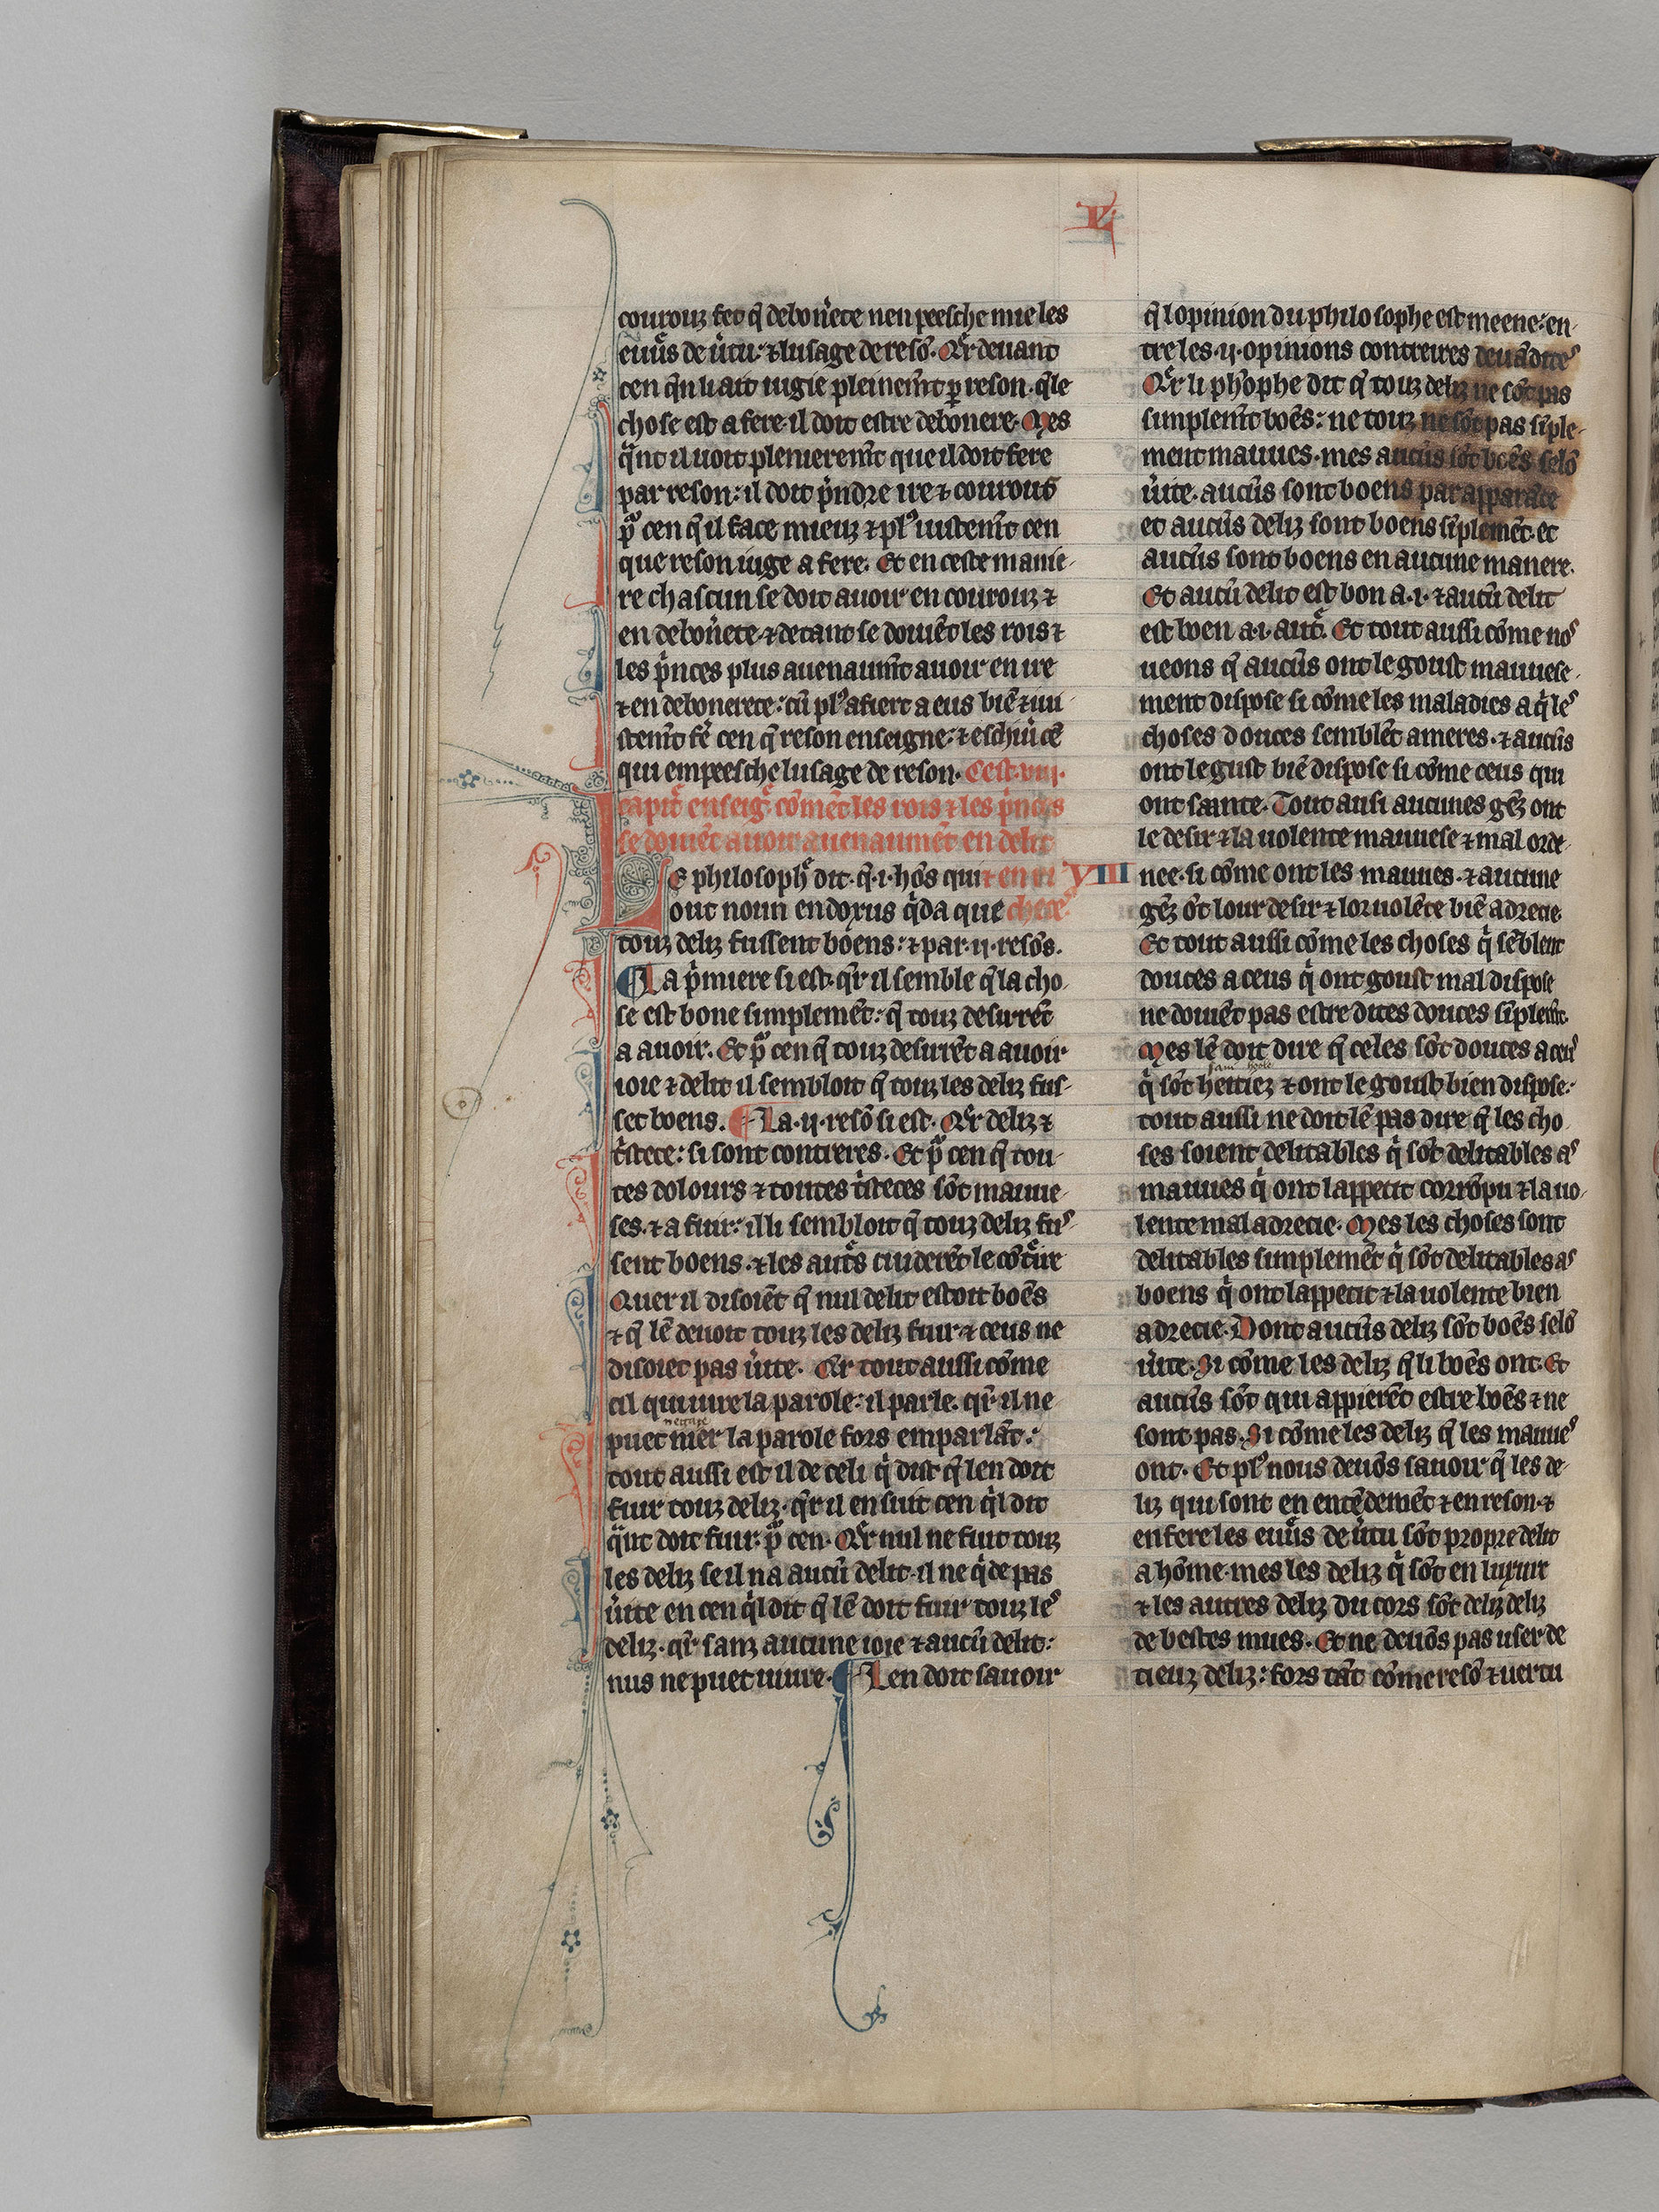 L
courouz fet q̃ debon̾ete nen peesche mie les
euũs de u̾tu: ⁊ lusage de resõ. Q̃r deuant
cen q̃n li ait iugie pleinem̃t p̱ reson. q̃le
chose est a fere. il doit estre debonere. Mes
qͣnt il uoit plenierem̃t que il doit fere
par reson: il doit p̾ndre ire ⁊ courous
pͦ cen q̃ il face mieuz ⁊ plꝰ iustem̃t cen
que reson iuge a fere. Et en ceste manie-
re chascun se doit auoir en courouz ⁊
en debon̾ete. ⁊ de tant se doiuẽt les rois ⁊
les p̾nces plus auenaum̃t auoir en ire
⁊ en debonerete: cũ plꝰ afiert a eus biẽ ⁊ iu-
stem̃t fẽ cen q̃ reson enseigne: ⁊ eschiu̾ cẽ
qui empeesche lusage de reson. Cest. viij.
capit̾ enseig̾. cõmẽt les rois ⁊ les p̾nces
se doiuẽt auoir auenaumẽt en delit
Le philosoph̾ dit. q̃ .i. hõs qui ⁊ en ri
out noun endoxus q̾da que chece
touz deliz fussent boens: ⁊ par .ij. resõs.
VIII
¶ La p̾miere si est. q̃r il semble q̃ la cho-
se est bone simplemẽt: q̃ touz desirrẽt
a auoir. Et pͦ cen q̃ touz desirrẽt a auoir
ioie ⁊ delit il sembloit q̃ touz les deliz fus-
set boens. ¶ La .ij. resõ si est. Q̃r deliz ⁊
t̾stece: si sont contreres. Et pͦ cen q̃ tou-
tes dolours ⁊ toutes t̾steces sõt mauue-
ses. ⁊ a fuir: il li sembloit q̃ touz deliz fuˢ
sent boens. ⁊ les aut̾s cuiderẽt le cõt̾ire
Quer il disoiẽt q̃ nul delit estoit boẽs
⁊ q̃ lẽ deuoit touz les deliz fuir. ⁊ ceus ne
disoiet pas u̾ite. Q̃r tout aussi cõme
cil qui niie la parole: il parle. q̃r il ne
negare
puet nier la parole fors emparlãt:
tout aussi est il de celi q̾ dist q̃ len doit
fuir touz deliz. q̃r il ensuit cen q̾l dit
qͣnt doit fuir. pͦ cen. Q̃r nul ne fuit touz
les deliz se il na aucũ delit. il ne q̾de pas
u̾ite en cen q̾l dit q̃ lẽ doit fuir touz leˢ
deliz. q̃r sanz aucune ioie ⁊ aucũ delit:
nus ne puet uiure. ¶ Len doit sauoir
q̃ lopinion du philosophe est meene: en-
tre les .ij. opinions contreires deuãditeˢ
Q̃r li ph̃ophe dit q̃ touz deliz ne sõt pas
simplem̃t boẽs: ne touz ne sõt pas sĩple-
ment mauues. mes aucũs sõt boẽs selõ
u̾ite. aucũs sont boens par apparãce
et aucũs deliz sont boens sĩplemẽt. et
aucũs sont boens en aucune manere.
Et aucũ delit est bon a .i. ⁊ aucũ delit
est boen a .i. aut̾. Et tout aussi cõme noˢ
ueons q̃ aucũs ont le goust mauuese-
ment dispose si cõme les maladies a q̾ leˢ
choses douces semblẽt ameres. ⁊ aucũs
ont le gust biẽ dispose si cõme ceus qui
ont sante. Tout ausi aucunes gẽz ont
le desir ⁊ la uolente mauuese ⁊ mal orde-
nee. si cõme ont les mauues. ⁊ aucune
gẽz õt lour desir ⁊ lor uolẽte biẽ adrecie.
Et tout aussi cõme les choses q̾ sẽblent
douces a ceus q̾ ont goust mal dispose
ne doiuẽt pas estre dites douces sĩplem̃t.
Mes lẽ doit dire q̃ celes sõt douces a ceuˢ
q̾ sõt heitiez ⁊ ont le goust bien dispose:
tout aussi ne doit lẽ pas dire q̃ les cho-
ses soient delitables q̾ sõt delitables aˢ
mauues q̾ ont lappetit corrõpu ⁊ la uo-
lente mal adrecie. Mes les choses sont
delitables simplemẽt q̾ sõt delitables aˢ
boens q̾ ont lappetit ⁊ la uolente bien
adrecie. Dont aucũs deliz sõt boẽs selõ
u̾ite. Si cõme les deliz q̃ li boẽs ont. Et
aucũs sõt qui appierẽt estre boẽs ⁊ ne
sont pas. Si cõme les deliz q̃ les mauueˢ
ont. Et plꝰ nous deuõs sauoir q̃ les de-
liz qui sont en entẽdemẽt ⁊ en reson. ⁊
en fere les euũs de u̾tu sõt propre delit
a hõme. mes les deliz q̾ sõt en luxure
⁊ les autres deliz du cors sõt deliz deliz
de bestes mues. Et ne deuõs pas user de
tieuz deliz: fors tãt cõme resõ ⁊ uertu